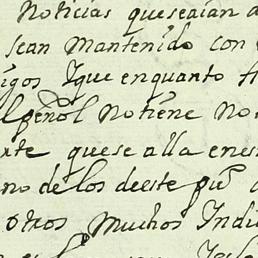 Noticias queseaian a
sean Mantenido con
igos Yque enquanto
el peñol Notiene No
rte quese alla enes
no de los deeste
otros Muchos Indi